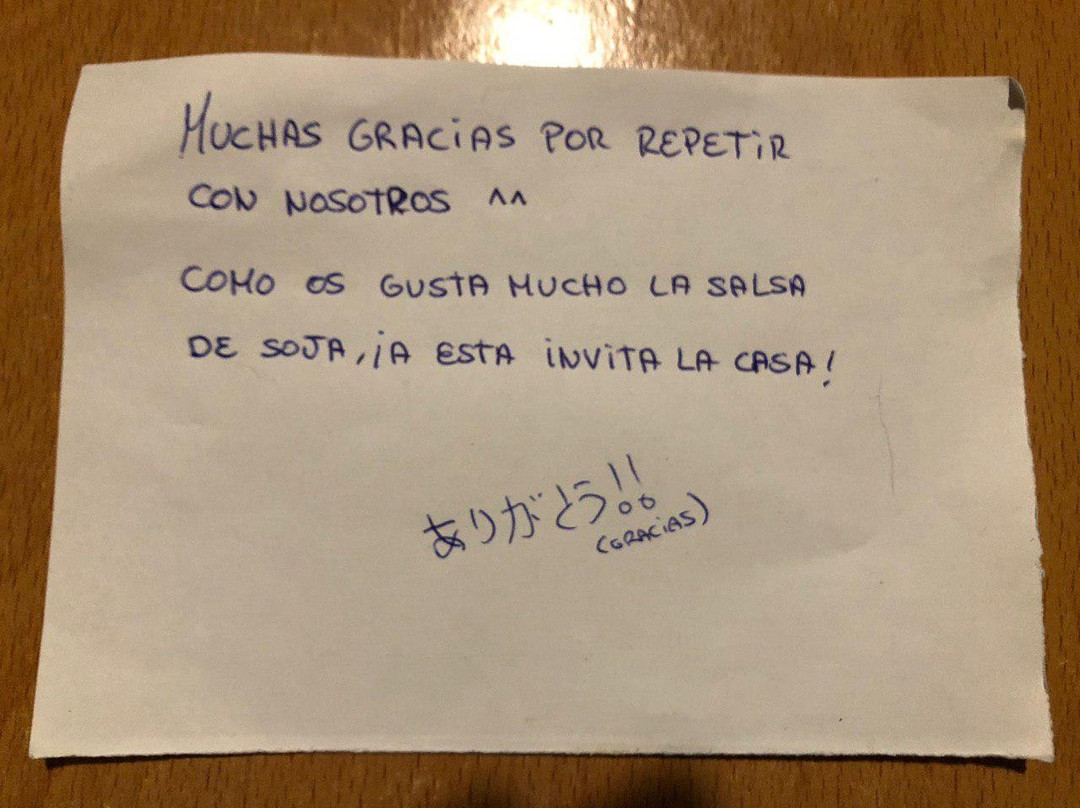 MUCHAS GRACIAS POR REPETIR
CON NOSOTROS ^^
COMO OS GUSTA MUCHO LA SALSA
DE SOJA, ¡A ESTA INVITA LA CASA!
ありがとう!!
(GRACIAS)